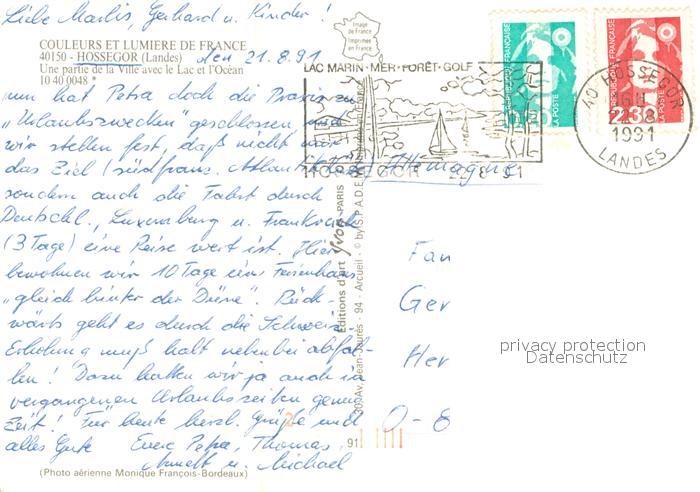 Liebe Marlis, Gerhard u. Kinder!
Image
de France
Imprimée
en France
COULEURS ET LUMIERE DE FRANCE
40150 - HOSSEGOR (Landes)
den 21.8.91
Une partie de la Ville avec le Lac et l'Océan
10 40 0048 *
nun hat Petra doch die Praxis zu
„Urlaubszwecken" geschlossen, und
wir stellen fest, daß nicht nur
das Ziel (südfranz. Atlantikküste)
sondern auch die Fahrt durch
Deutschl., Luxemburg u. Frankreich
(3 Tage) eine Reise wert ist. Hier
bewohnen wir 10 Tage ein Ferienhaus
„gleich hinter der Düne". Rück-
wärts geht es durch die Schweiz.
Erholung muß halt nebenbei abfal-
len! Dazu hatten wir ja auch in
vergangenen Urlaubszeiten genug
Zeit! Für heute herzl. Grüße und
alles Gute Eure Petra, Thomas,
Annett u. Michael
(Photo aérienne Monique François-Bordeaux)
Editions d'art Yvon - PARIS
30, Av. Jean-Jaurès - 94 - Arcueil - © by S.P.A.D.E.M.
91
LAC MARIN-MER-FORÊT-GOLF
HOSSEGOR
22.8.91
REPUBLIQUE FRANÇAISE
LA POSTE
REPUBLIQUE FRANÇAISE
2,30
LA POSTE
40 HOSSEGOR
1991
LANDES
Allemagne
Fam
Ger
Her
O-8
privacy protection
Datenschutz